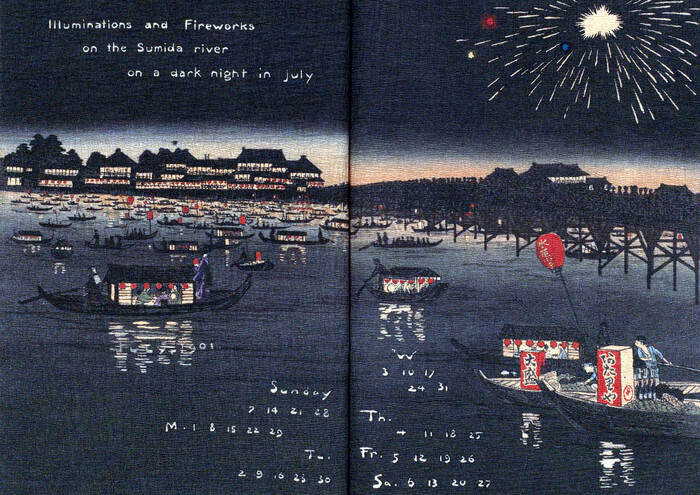 Illuminations and Fireworks
on the Sumida river
on a dark night in july
Sunday
7 14 21 28
M. 1 8 15 22 29
Tu.
2 9 16 23 30
W
3 10 17
24 31
Th.
4 11 18 25
Fr. 5 12 19 26
Sa. 6 13 20 27
大盛